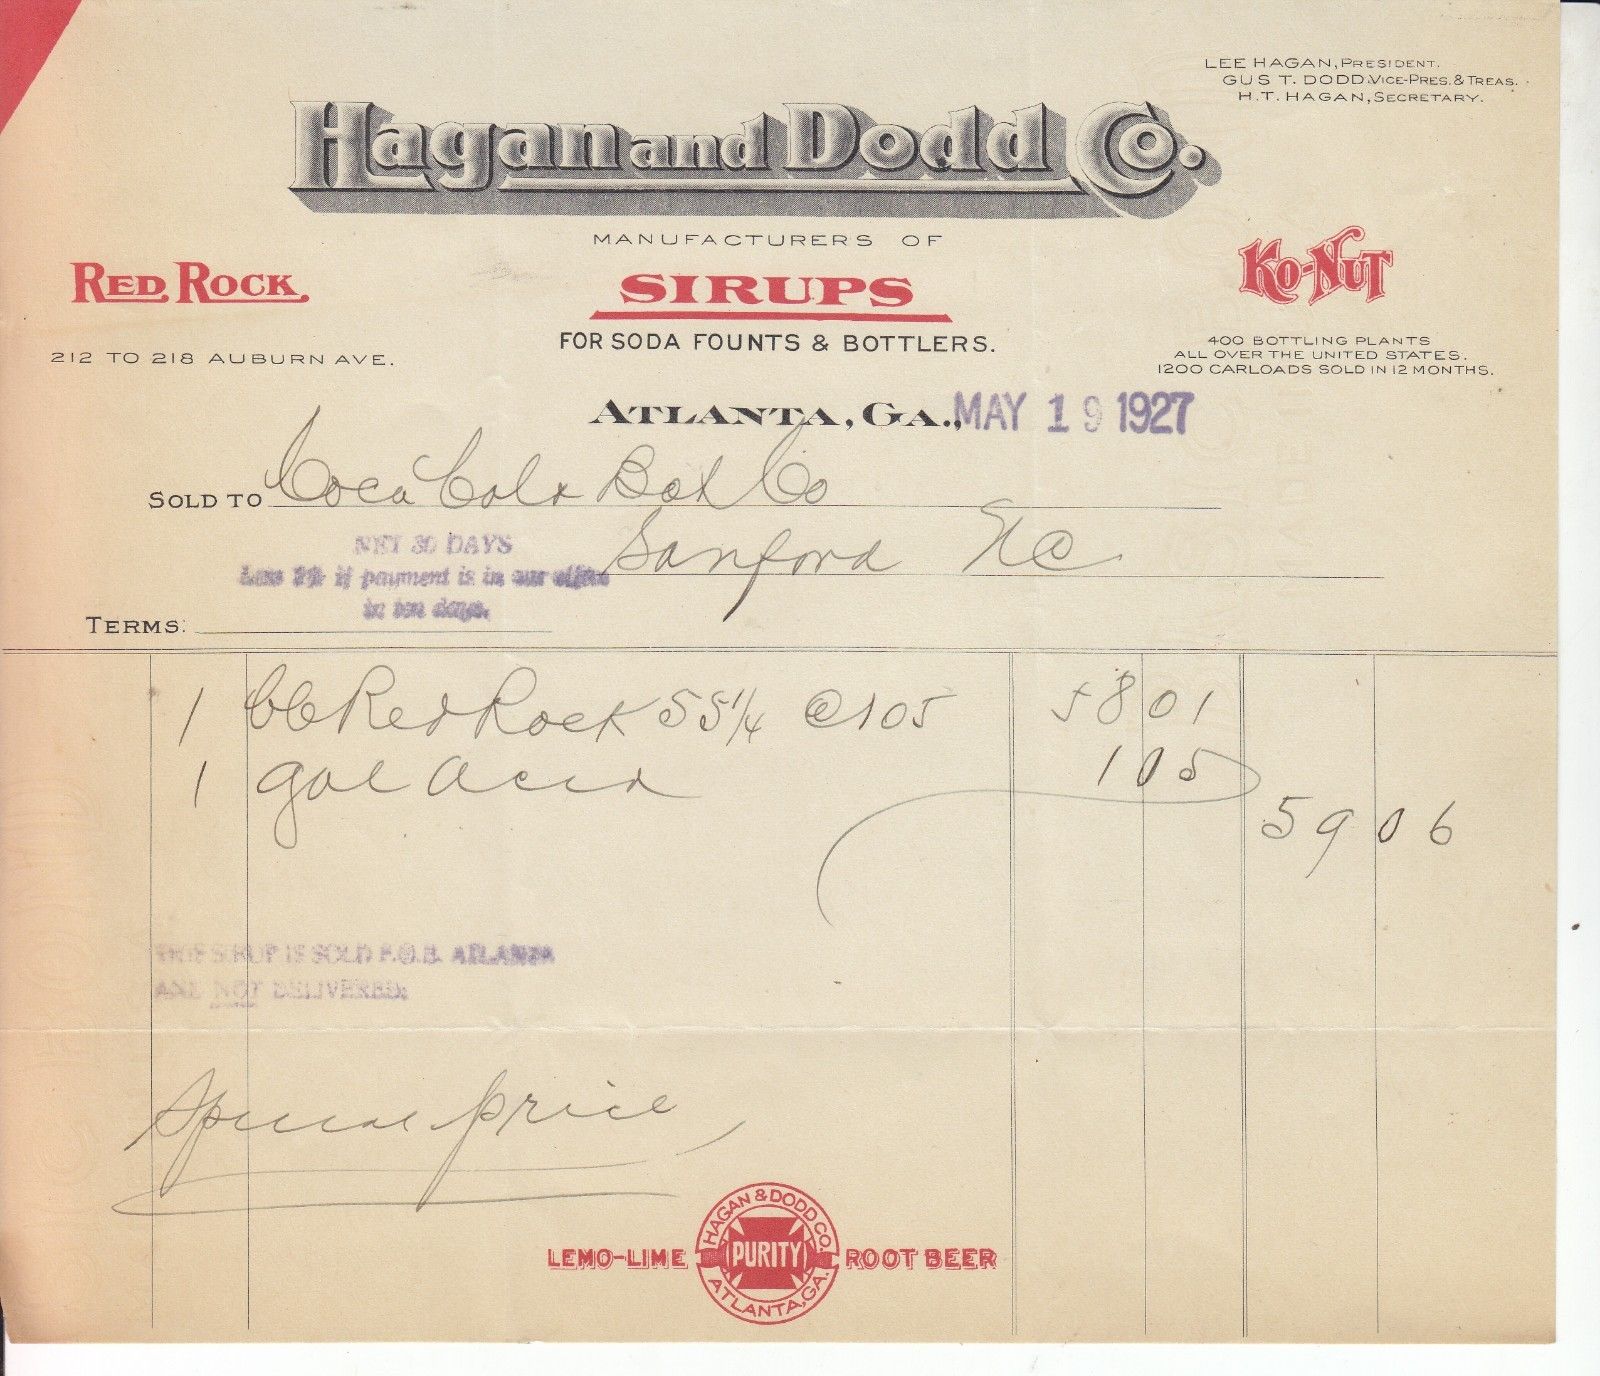 LEE HAGAN, PRESIDENT.
GUS T. DODD. VICE-PRES. & TREAS.
H.T. HAGAN, SECRETARY.
Hagan and Dodd Co.
MANUFACTURERS OF
RED ROCK.
SIRUPS
KO-NUT
212 TO 218 AUBURN AVE.
FOR SODA FOUNTS & BOTTLERS.
400 BOTTLING PLANTS
ALL OVER THE UNITED STATES.
1200 CARLOADS SOLD IN 12 MONTHS.
ATLANTA, GA., MAY 19 1927
SOLD TO Coca Cola Bot Co
Sanford NC
NET 30 DAYS
Less 2% if payment is in our office
in ten days.
TERMS:
1 Red Rock 55 1/4 @ 105 58 01
1 gal Acid 1 05
59 06
SIRUP IS SOLD F.O.B. ATLANTA
AND NOT DELIVERED.
Special price
HAGAN & DODD CO.
LEMO-LIME PURITY ROOT BEER
ATLANTA, GA.